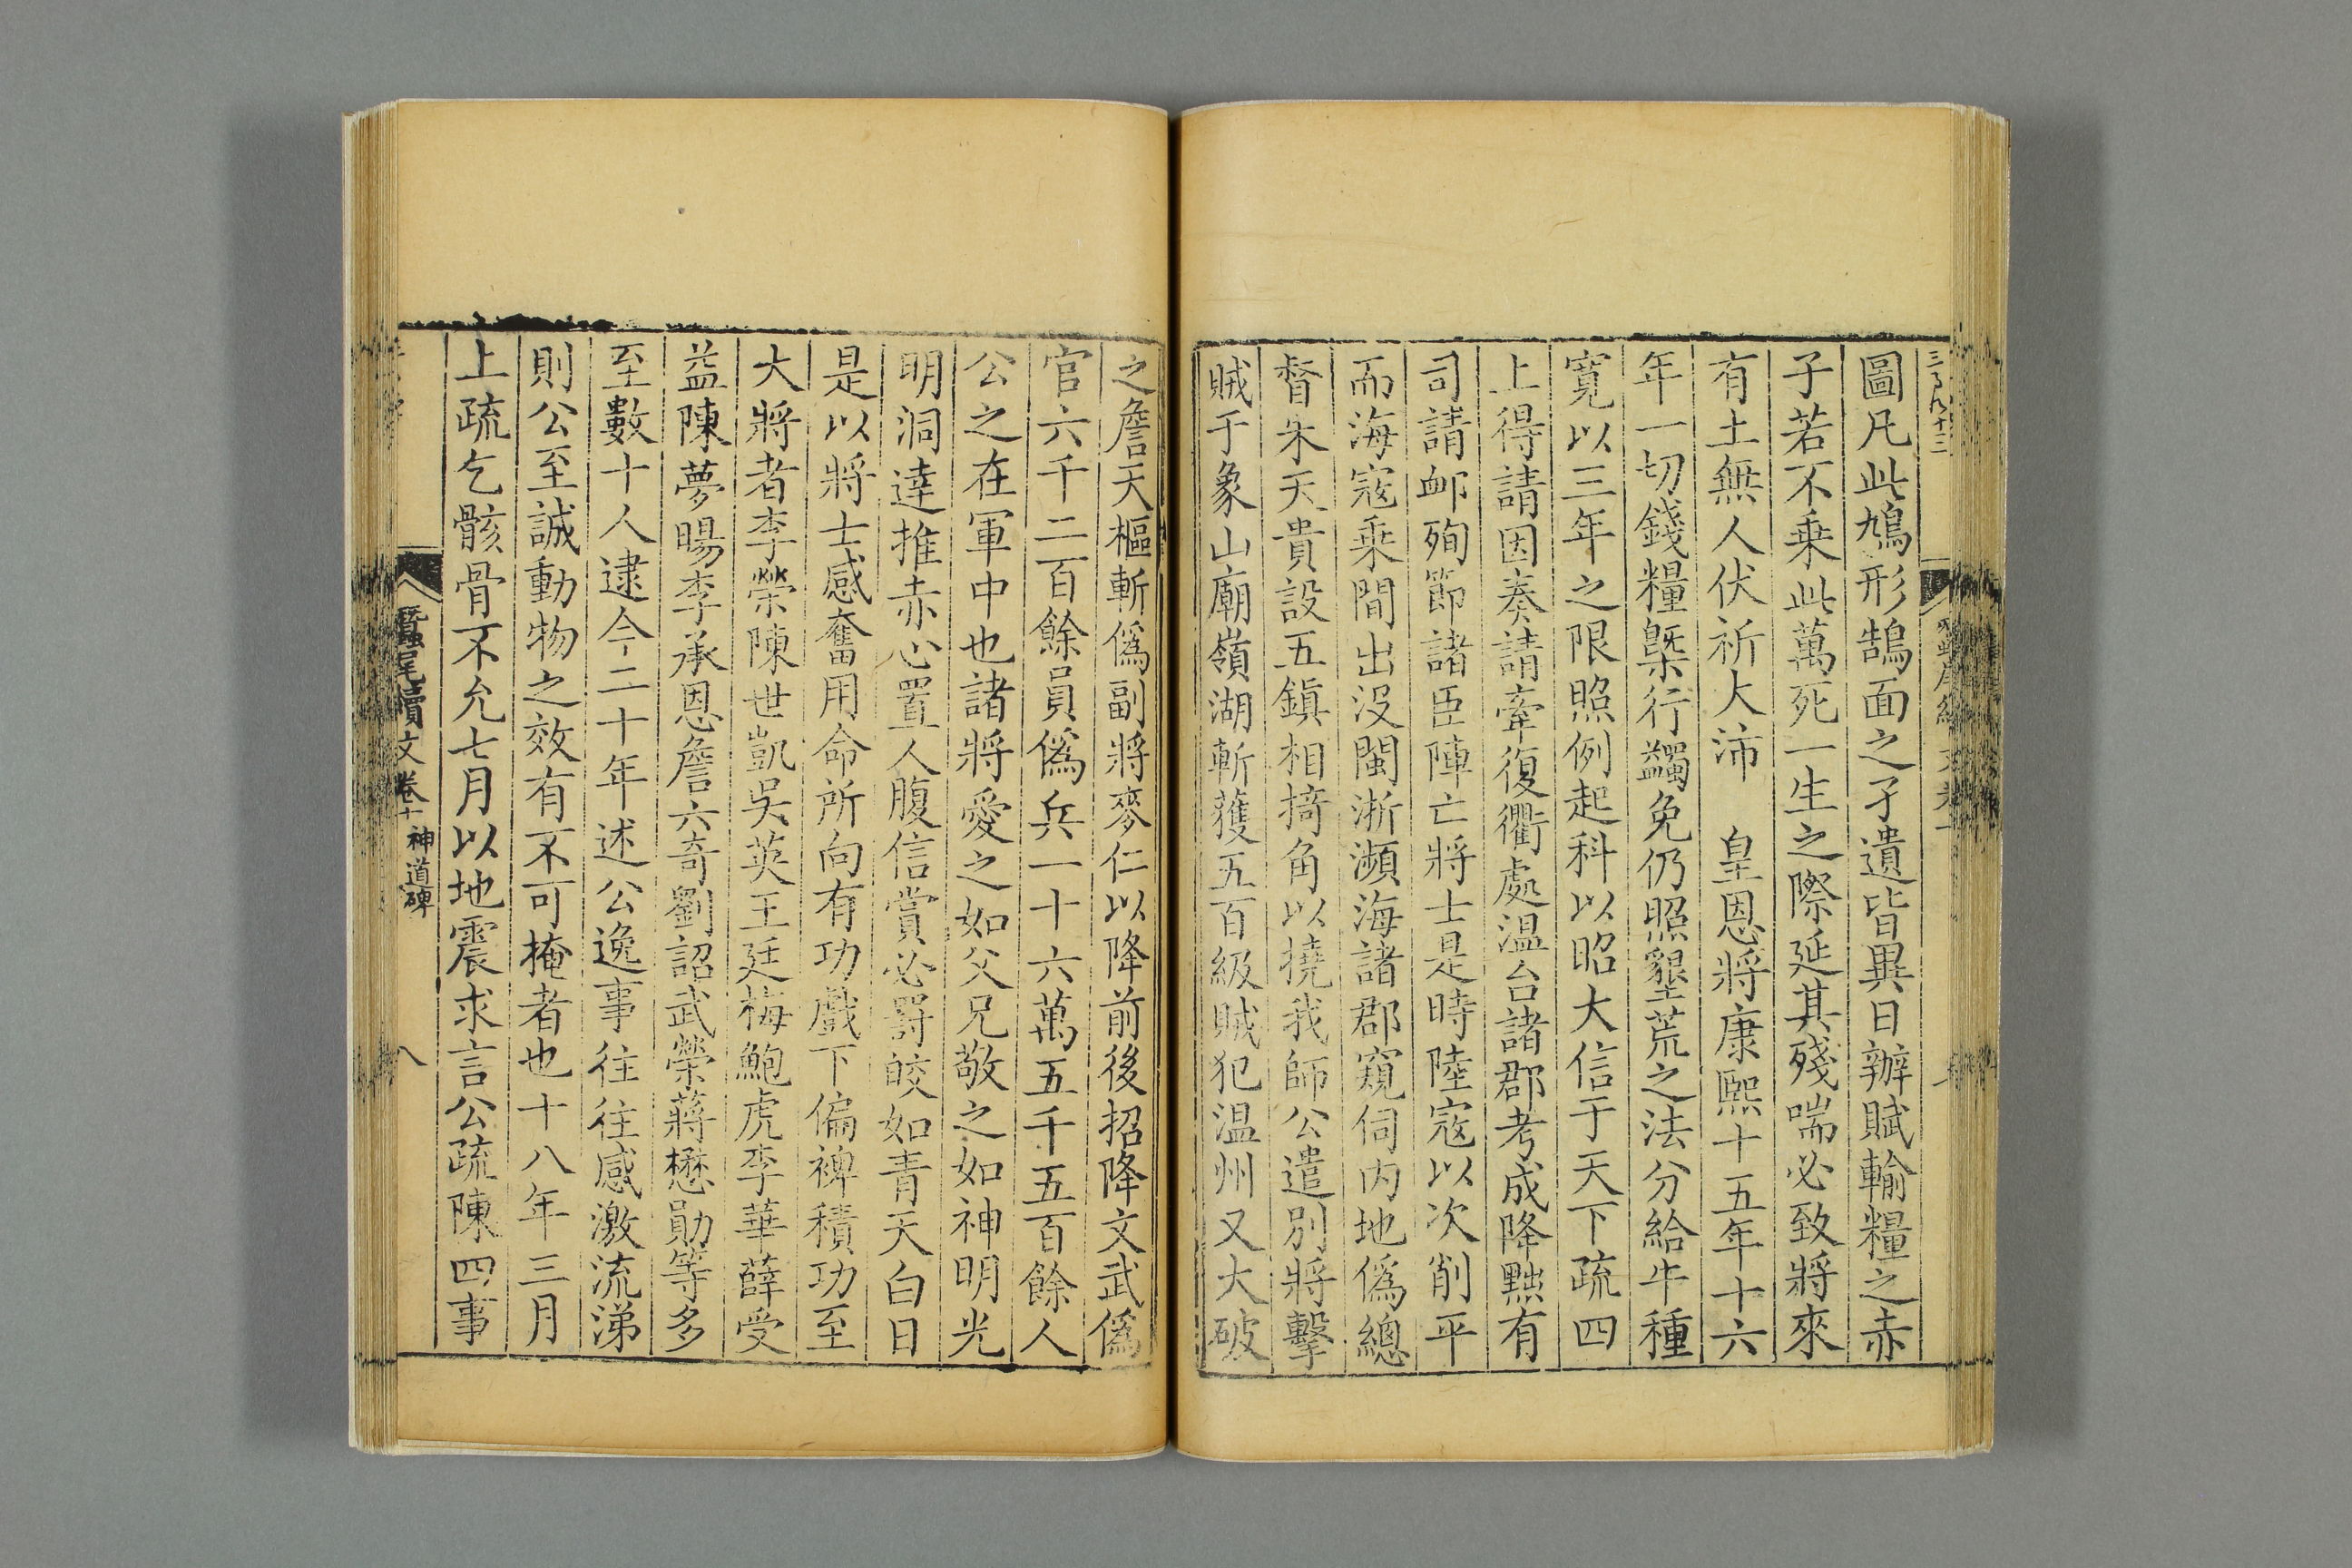 圖凡此鳩形鵠面之孑遺皆異日辦賦輸糧之赤
子若不乗此萬死一生之際延其殘喘必致將來
有土無人伏祈大沛　皇恩將康熙十五年十六
年一切錢糧槩行蠲免仍照墾荒之法分給牛種
寛以三年之限照例起科以昭大信于天下疏四
上得請因奏請牽復衢處温台諸郡考成降黜有
司請䘏殉節諸臣陣亡將士是時陸寇以次削平
而海寇乗間出没閩浙瀕海諸郡窺伺内地僞總
督朱天貴設五鎮相掎角以撓我師公遣別將擊
賊于象山廟嶺湖斬獲五百級賊犯温州又大破
之詹天樞斬僞副將麥仁以降前後招降文武僞
官六千二百餘員僞兵一十六萬五千五百餘人
公之在軍中也諸將愛之如父兄敬之如神明光
明洞達推赤心置人腹信賞必罰皎如青天白日
是以將士感奮用命所向有功戲下偏裨積功至
大將者李榮陳世凱吳英王廷梅鮑虎李華薛受
益陳夢暘李承恩詹六奇劉詔武榮蔣懋勛等多
至數十人逮今二十年述公逸事往往感激流涕
則公至誠動物之效有不可掩者也十八年三月
上疏乞骸骨不允七月以地震求言公疏陳四事
蠶尾續文卷十 神道碑 八